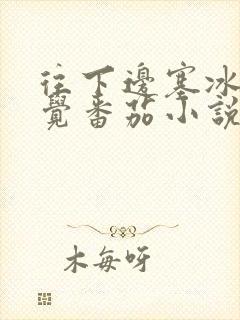 往下邊塞冰
覺番茄小說
木每呀